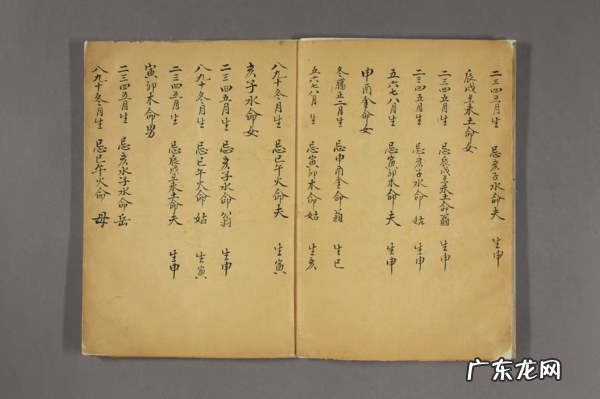 二三四五月生 忌亥子水命夫 生申
辰戌丑未土命女
二三四五月生 忌辰戌丑未土命翁 生申
二三四五月生 忌亥子水命姑 生申
五六七八月生 忌寅卯木命夫 生申
申酉金命女
冬腊正二月生 忌申酉金命翁 生巳
五六七八月生 忌寅卯木命姑 生亥
八九十冬月生 忌巳午火命夫 生寅
亥子水命女
二三四五月生 忌亥子水命翁 生申
八九十冬月生 忌巳午火命姑 生寅
二三四五月生 忌辰戌丑未土命夫 生申
寅卯木命男
二三四五月生 忌亥水子水命岳
八九十冬月生 忌巳午火命母
广东龙网